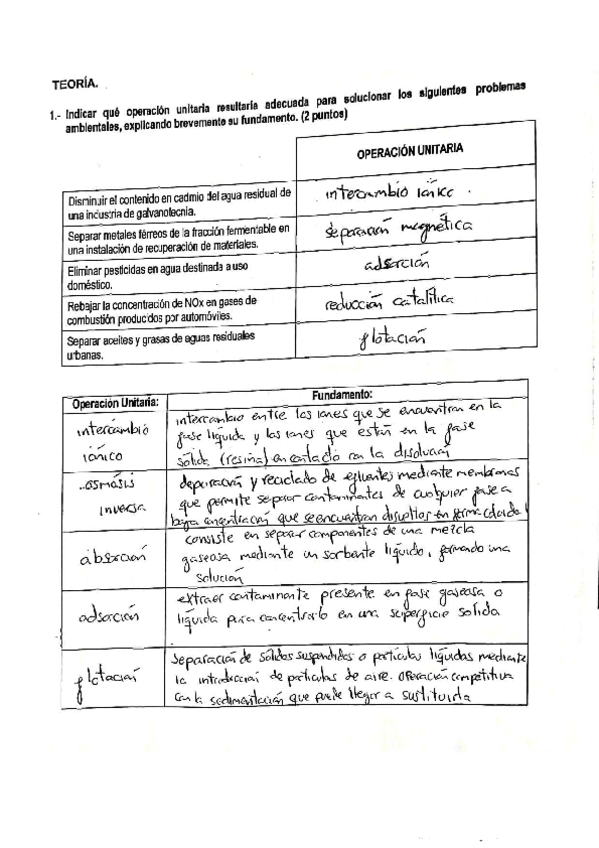 TEORÍA.
1.- Indicar qué operación unitaria resultaría adecuada para solucionar los siguientes problemas
ambientales, explicando brevemente su fundamento. (2 puntos)
OPERACIÓN UNITARIA
Disminuir el contenido en cadmio del agua residual de
una industria de galvanotecnia.
intercambio iónico.
Separar metales férreos de la fracción fermentable en
una instalación de recuperación de materiales.
separación magnética
Eliminar pesticidas en agua destinada a uso
doméstico.
adsorción
Rebajar la concentración de NOx en gases de
combustión producidos por automóviles.
reducción catalítica
Separar aceites y grasas de aguas residuales
urbanas.
flotación
Operación Unitaria:
Fundamento:
intercambio
iónico
intercambio entre los iones que se encuentran en la
fase líquida y los iones que están en la fase
sólida (resina) en contacto con la disolución
osmósis
inversa
depuración y reciclado de efluentes mediante membranas
que permite separar contaminantes de cualquier fase a
baja concentración que se encuentran disueltos en forma coloidal
absorción
consiste en separar componentes de una mezcla
gaseosa mediante un sorbente líquido, formando una
solución
adsorción
extraer contaminante presente en fase gaseosa o
líquida para concentrarlo en una superficie solida
flotación
Separación de sólidos suspendidos o partículas líquidas mediante
la introducción de partículas de aire. Operación competitiva
con la sedimentación que puede llegar a sustituirla